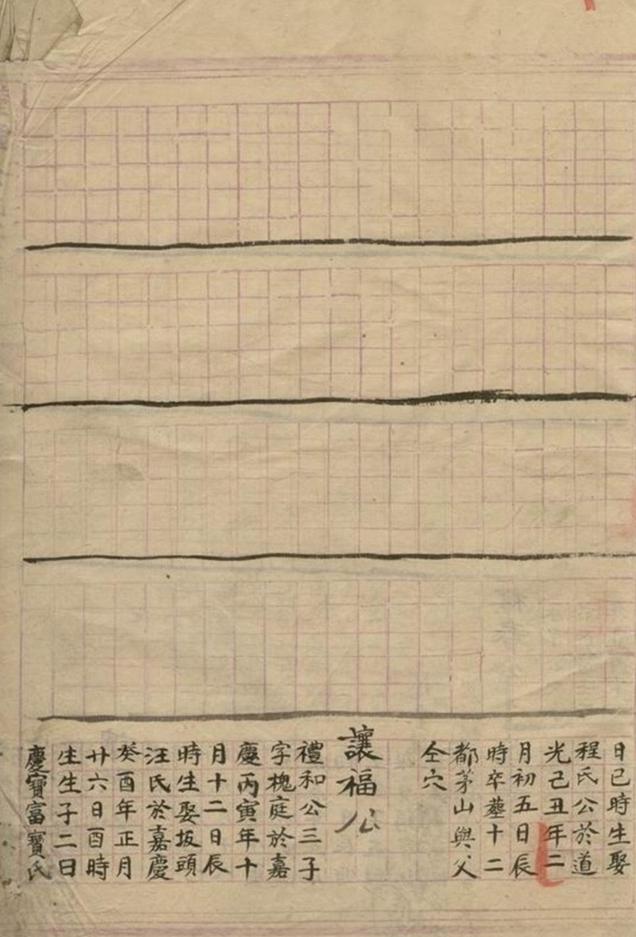 日巳時生娶
程氏公於道
光己丑年二
月初五日辰
時卒塟十二
都茅山與父
仝穴
讓福公
禮和公三子
字槐庭於嘉
慶丙寅年十
月十二日辰
時生娶坂頭
汪氏於嘉慶
癸酉年正月
廿六日酉時
生生子二曰
慶寶富寶氏